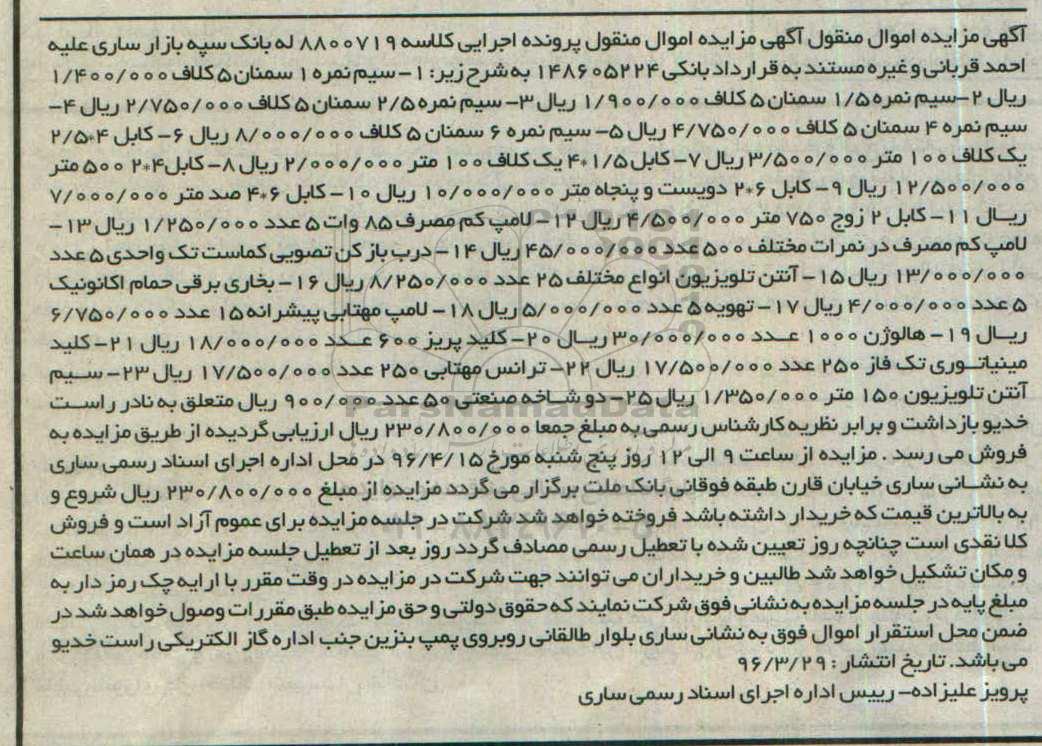 آگهی مزایده اموال منقول آگهی مزایده اموال منقول پرونده اجرایی کلاسه ۸۸۰۰۷۱۹ له بانک سپه بازار ساری علیه
احمد قربانی و غیره مستند به قرارداد بانکی ۱۴۸۶۰۵۲۲۴ به شرح زیر: ۱- سیم نمره ۱ سمنان ۵ کلاف ۱/۴۰۰/۰۰۰
ریال ۲-سیم نمره ۱/۵ سمنان ۵ کلاف ۱/۹۰۰/۰۰۰ ریال ۳- سیم نمره ۲/۵ سمنان ۵ کلاف ۲/۷۵۰/۰۰۰ ریال ۴-
سیم نمره ۴ سمنان ۵ کلاف ۴/۷۵۰/۰۰۰ ریال ۵- سیم نمره ۶ سمنان ۵ کلاف ۸/۰۰۰/۰۰۰ ریال ۶- کابل ۴*۲/۵
یک کلاف ۱۰۰ متر ۳/۵۰۰/۰۰۰ ریال ۷- کابل ۱/۵*۴ یک کلاف ۱۰۰ متر ۲/۰۰۰/۰۰۰ ریال ۸- کابل ۴*۲ ۵۰۰ متر
۱۲/۵۰۰/۰۰۰ ریال ۹- کابل ۶*۲ دویست و پنجاه متر ۱۰/۰۰۰/۰۰۰ ریال ۱۰- کابل ۶*۴ صد متر ۷/۰۰۰/۰۰۰
ریال ۱۱- کابل ۲ زوج ۷۵۰ متر ۴/۵۰۰/۰۰۰ ریال ۱۲- لامپ کم مصرف ۸۵ وات ۵ عدد ۱/۲۵۰/۰۰۰ ریال ۱۳-
لامپ کم مصرف در نمرات مختلف ۵۰۰ عدد ۴۵/۰۰۰/۰۰۰ ریال ۱۴- درب باز کن تصویی کماست تک واحدی ۵ عدد
۱۳/۰۰۰/۰۰۰ ریال ۱۵- آنتن تلویزیون انواع مختلف ۲۵ عدد ۸/۲۵۰/۰۰۰ ریال ۱۶- بخاری برقی حمام اکانونیک
۵ عدد ۴/۰۰۰/۰۰۰ ریال ۱۷- تهویه ۵ عدد ۵/۰۰۰/۰۰۰ ریال ۱۸- لامپ مهتابی پیشرانه ۱۵ عدد ۶/۷۵۰/۰۰۰
ریال ۱۹- هالوژن ۱۰۰۰ عدد ۳۰/۰۰۰/۰۰۰ ریال ۲۰- کلید پریز ۶۰۰ عدد ۱۸/۰۰۰/۰۰۰ ریال ۲۱- کلید
مینیاتوری تک فاز ۲۵۰ عدد ۱۷/۵۰۰/۰۰۰ ریال ۲۲- ترانس مهتابی ۲۵۰ عدد ۱۷/۵۰۰/۰۰۰ ریال ۲۳- سیم
آنتن تلویزیون ۱۵۰ متر ۱/۳۵۰/۰۰۰ ریال ۲۵- دو شاخه صنعتی ۵۰ عدد ۹۰۰/۰۰۰ ریال متعلق به نادر راست
خدیو بازداشت و برابر نظریه کارشناس رسمی به مبلغ جمعا ۲۳۰/۸۰۰/۰۰۰ ریال ارزیابی گردیده از طریق مزایده به
فروش می رسد . مزایده از ساعت ۹ الی ۱۲ روز پنج شنبه مورخ ۹۶/۴/۱۵ در محل اداره اجرای اسناد رسمی ساری
به نشانی ساری خیابان قارن طبقه فوقانی بانک ملت برگزار می گردد مزایده از مبلغ ۲۳۰/۸۰۰/۰۰۰ ریال شروع و
به بالاترین قیمت که خریدار داشته باشد فروخته خواهد شد شرکت در جلسه مزایده برای عموم آزاد است و فروش
کلا نقدی است چنانچه روز تعیین شده با تعطیل رسمی مصادف گردد روز بعد از تعطیل جلسه مزایده در همان ساعت
و مکان تشکیل خواهد شد طالبین و خریداران می توانند جهت شرکت در مزایده در وقت مقرر با ارایه چک رمز دار به
مبلغ پایه در جلسه مزایده به نشانی فوق شرکت نمایند که حقوق دولتی و حق مزایده طبق مقررات وصول خواهد شد در
ضمن محل استقرار اموال فوق به نشانی ساری بلوار طالقانی روبروی پمپ بنزین جنب اداره گاز الکتریکی راست خدیو
می باشد. تاریخ انتشار : ۹۶/۳/۲۹
پرویز علیزاده- رییس اداره اجرای اسناد رسمی ساری
ParsNamadData